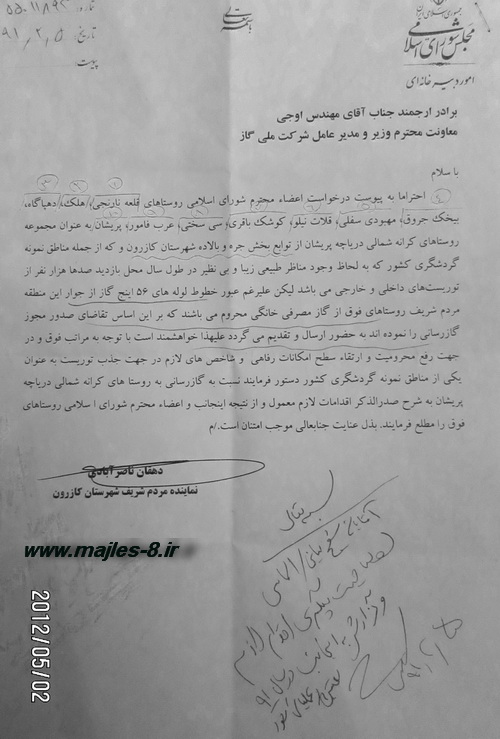 جمهوری اسلامی ایران
مجلس شورای اسلامی
امور دبیرخانه‌ای
باسمه تعالی
تاریخ ۹۱/۲/۵
پیوست:
برادر ارجمند جناب آقای مهندس اوجی
معاونت محترم وزیر و مدیر عامل شرکت ملی گاز
با سلام
احتراما به پیوست درخواست اعضاء محترم شورای اسلامی روستاهای قلعه نارنجی/ هلک، دهپاگاه،
بیخک جروق، مهبودی سفلی، قلات نیلو، کوشک باقری، سی سختی، عرب فامور، پریشان به عنوان مجموعه
روستاهای کرانه شمالی دریاچه پریشان از توابع بخش جره و بالاده شهرستان کازرون و که از جمله مناطق نمونه
گردشگری کشور که به لحاظ وجود مناظر طبیعی زیبا و بی نظیر در طول سال محل بازدید صدها هزار نفر از
توریستهای داخلی و خارجی می باشد لیکن علیرغم عبور خطوط لوله های ۵۶ اینچ گاز از جوار این منطقه
مردم شریف روستاهای فوق از گاز مصرفی خانگی محروم می باشند که بر این اساس تقاضای صدور مجوز
گازرسانی را نموده اند به حضور ارسال و تقدیم می گردد علیهذا خواهشمند است با توجه به مراتب فوق و در
جهت رفع محرومیت و ارتقاء سطح امکانات رفاهی و شاخص های لازم در جهت جذب توریست به عنوان
یکی از مناطق نمونه گردشگری کشور دستور فرمایند نسبت به گازرسانی به روستا های کرانه شمالی دریاچه
پریشان به شرح صدرالذکر اقدامات لازم معمول و از نتیجه اینجانب و اعضاء محترم شورای ا سلامی روستاهای
فوق را مطلع فرمایند. بذل عنایت جنابعالی موجب امتنان است./م
دهقان ناصرآبادی
نماینده مردم شریف شهرستان کازرون
بسمه تعالی
www.majles-8.ir
2012/05/02